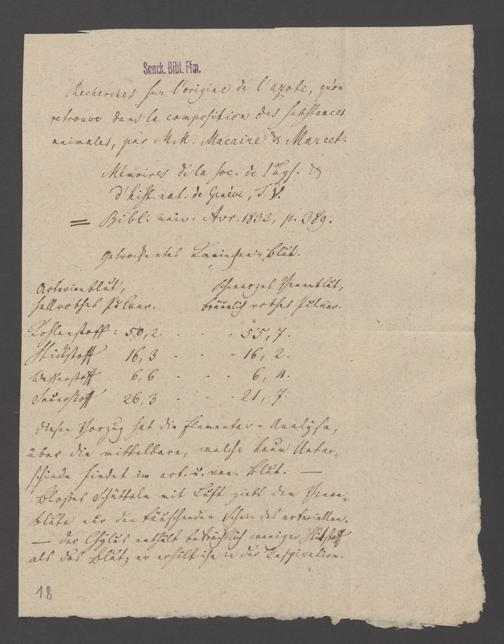 Senck. Bibl. Ffm.
Recherches sur l'origine de l'azote, qu'on
retrouve dans la composition des substances
animales, par M.M. Macaire & Marcet.
Mémoires de la soc. de Phys. &
d'hist. nat. de Genève, T. V.
= Bibl. univ. Avr. 1832, p. 389.
Getrocknetes Kaninchen-Blut.
Arterienblut, schwarzes Venenblut,
hellrothes Pulver. bräunlich rothes Pulver.
Kohlenstoff: 50,2. - - - 55,7.
Stickstoff 16,3 - - - 16,2.
Wasserstoff 6,6 - - - 6,4.
Sauerstoff 26,3 - - - 21,7.
Diesen Vorzug hat die Elementar-Analyse,
über die mittelbare, welche kaum Unter-
schiede findet im art. u. ven. Blut. —
Blosses Schütteln mit Luft giebt dem Venen-
blute nur den täuschenden Schein des arteriellen.
— der Chylus enthält beträchtlich weniger Stickstoff
als das Blut; er erhält ihn in der Respiration.
18